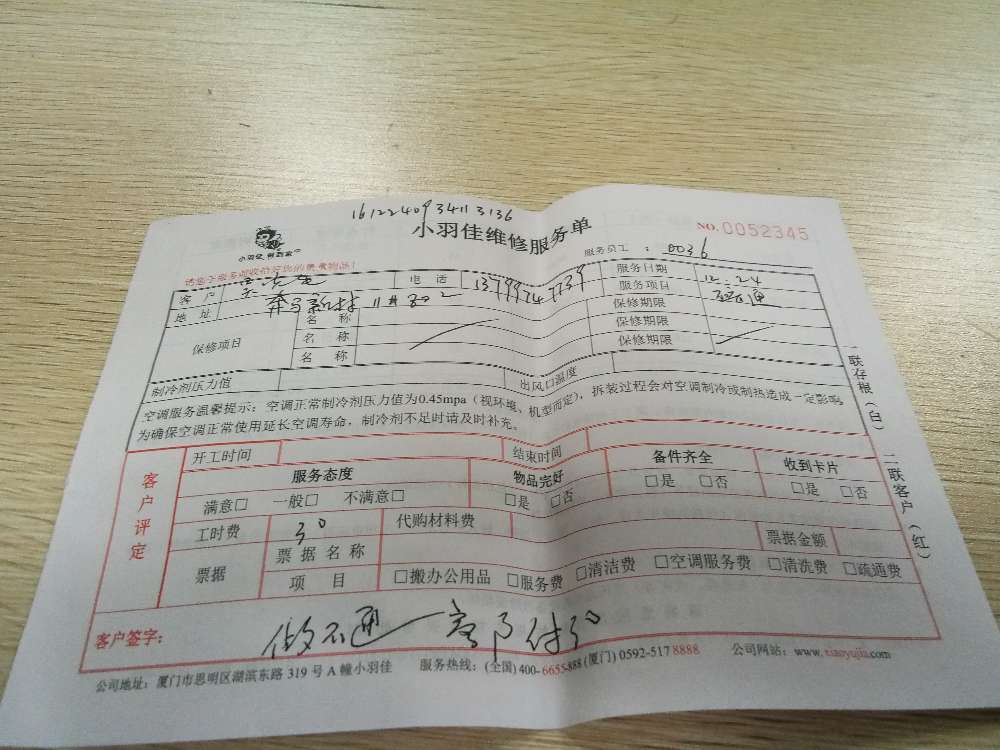 16122409 3411 3136
小羽佳维修服务单
NO.0052345
小羽佳
服务员工 : 0036
客 户 电 话 服务日期 12.24
地 址 服务项目
保修项目 名 称 保修期限
名 称 保修期限
名 称 保修期限
制冷剂压力值 出风口温度
空调服务温馨提示：空调正常制冷剂压力值为0.45mpa（视环境、机型而定），拆装过程会对空调制冷或制热造成一定影响
为确保空调正常使用延长空调寿命，制冷剂不足时请及时补充。
客户评定
开工时间 结束时间
服务态度 物品完好 备件齐全 收到卡片
满意□ 一般□ 不满意□ □是 □否 □是 □否 □是 □否
工时费 30 代购材料费
票据 票据名称 票据金额
项 目 □搬办公用品 □服务费 □清洁费 □空调服务费 □清洗费 □疏通费
客户签字：
做不通
公司地址：厦门市思明区湖滨东路 319 号 A 幢小羽佳 服务热线：(全国) 400-6655-888 (厦门) 0592-517 8888 公司网站：www.xiaoyujia.com
一联存根（白） 二联客户（红）